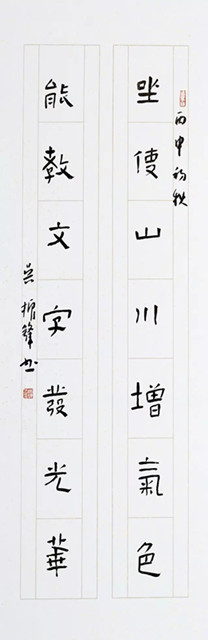 坐使山川增氣色
丙申初秋
能教文字發光華
吳振鋒書